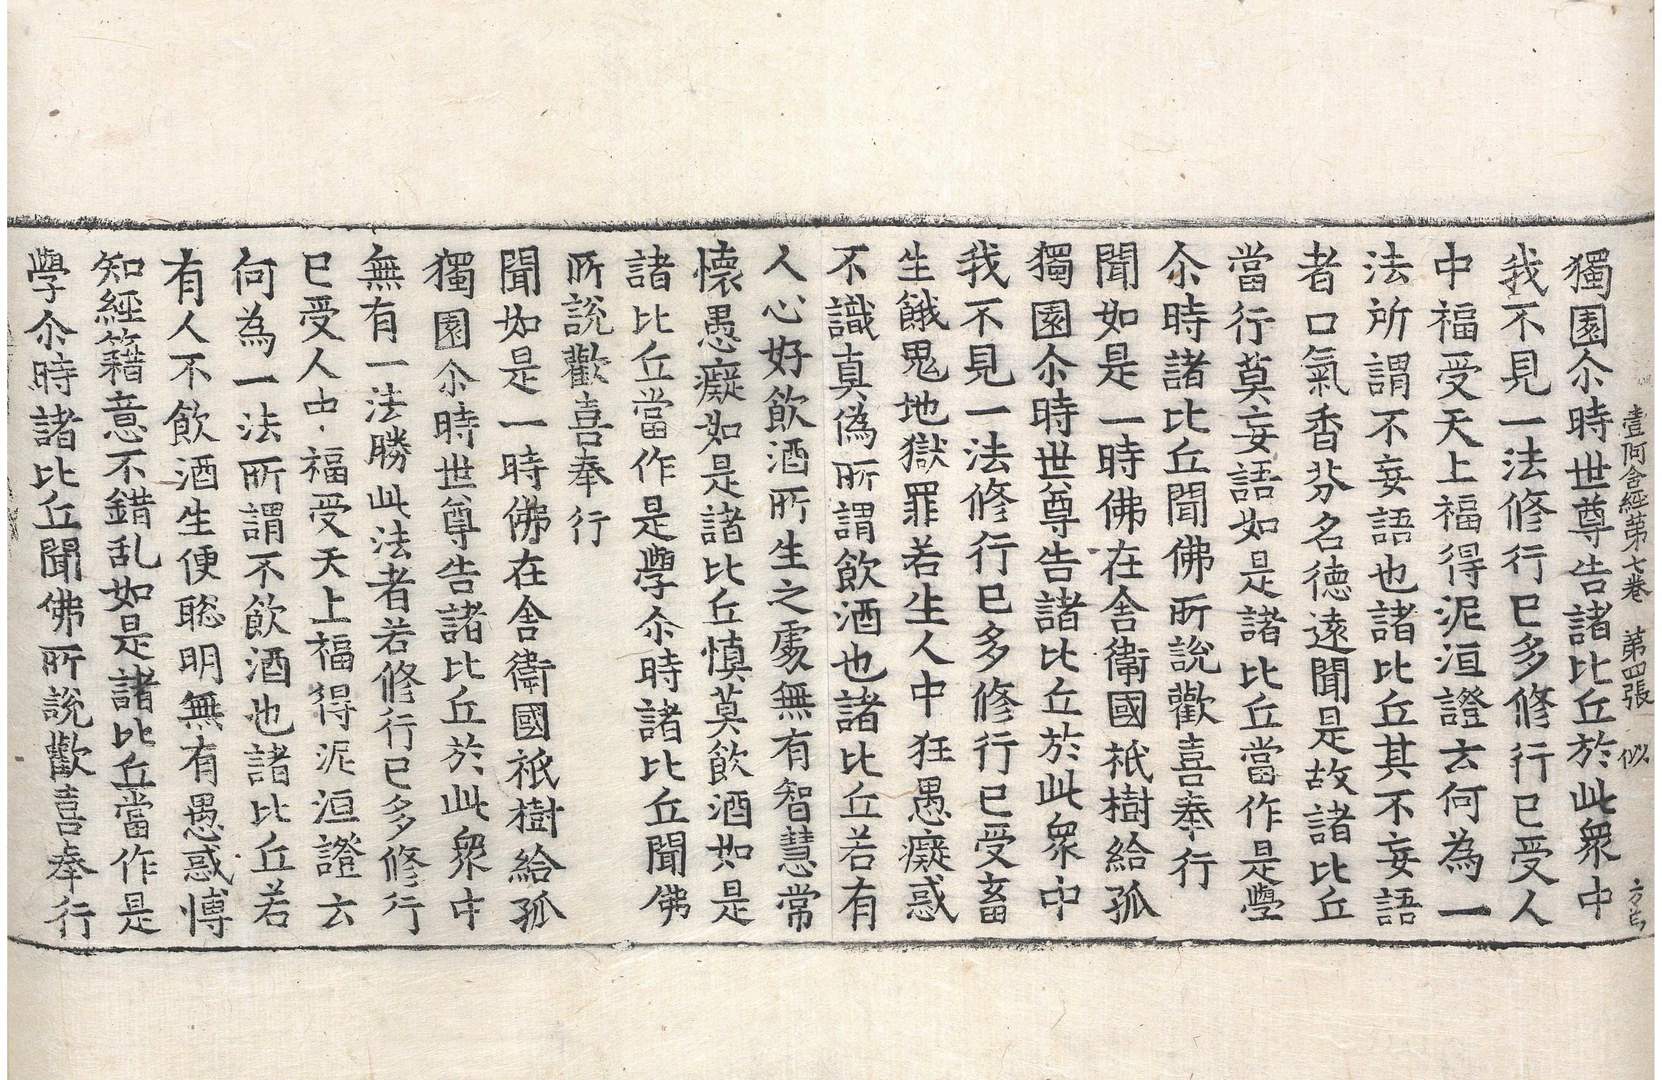 壹阿含經第七卷 第四張 似
獨園尒時世尊告諸比丘於此衆中
我不見一法修行已多修行已受人
中福受天上福得泥洹證云何為一
法所謂不妄語也諸比丘其不妄語
者口氣香芬名德遠聞是故諸比丘
當行莫妄語如是諸比丘當作是學
尒時諸比丘聞佛所說歡喜奉行
聞如是一時佛在舍衛國祇樹給孤
獨園尒時世尊告諸比丘於此衆中
我不見一法修行已多修行已受畜
生餓鬼地獄罪若生人中狂愚癡惑
不識真偽所謂飲酒也諸比丘若有
人心好飲酒所生之處無有智慧常
懷愚癡如是諸比丘慎莫飲酒如是
諸比丘當作是學尒時諸比丘聞佛
所說歡喜奉行
聞如是一時佛在舍衛國祇樹給孤
獨園尒時世尊告諸比丘於此衆中
無有一法勝此法者若修行已多修行
已受人中福受天上福得泥洹證云
何為一法所謂不飲酒也諸比丘若
有人不飲酒生便聡明無有愚惑博
知經籍意不錯乱如是諸比丘當作是
學尒時諸比丘聞佛所說歡喜奉行